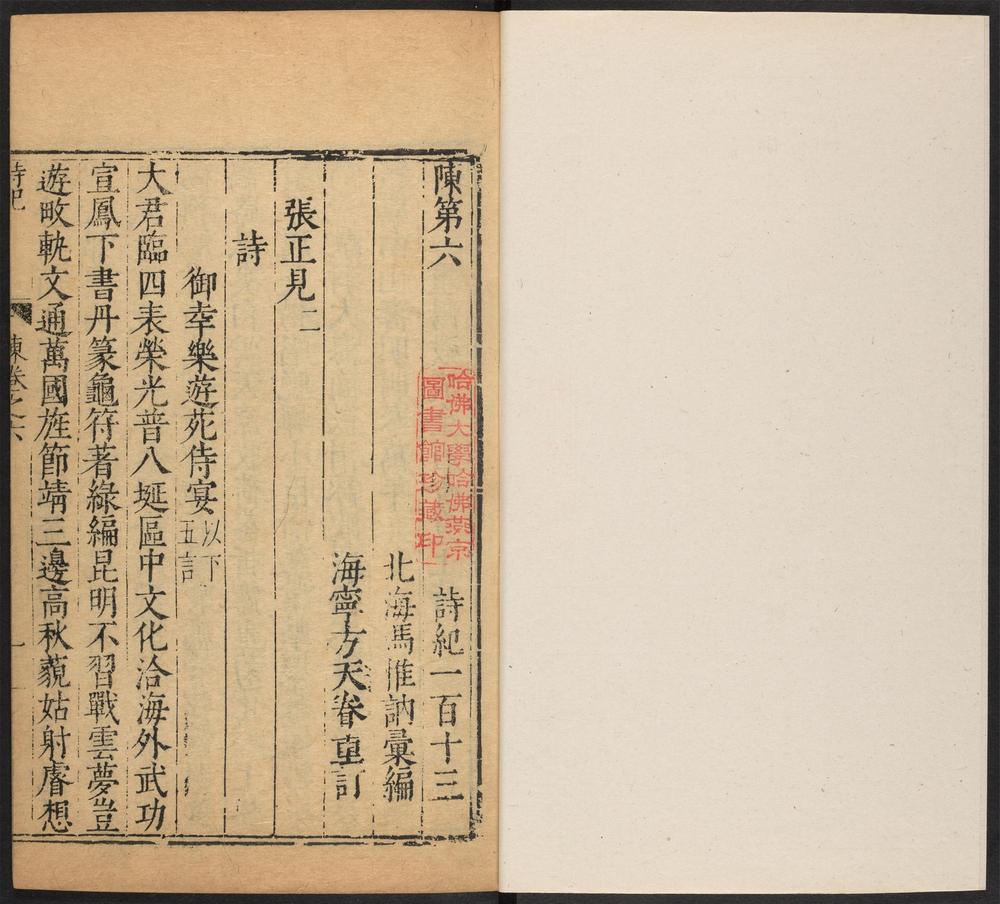 陳第六 詩紀一百十三
北海馮惟訥彙編
海寧方天眷重訂
張正見二
詩
御幸樂遊苑侍宴 以下五言
大君臨四表榮光普八埏區中文化洽海外武功
宣鳳下書丹篆龜符著綠編昆明不習戰雲夢豈
遊畋軌文通萬國旌節靖三邊高秋藐姑射睿想
詩紀 陳卷之六 一
哈佛大學哈佛燕京
圖書館珍藏印